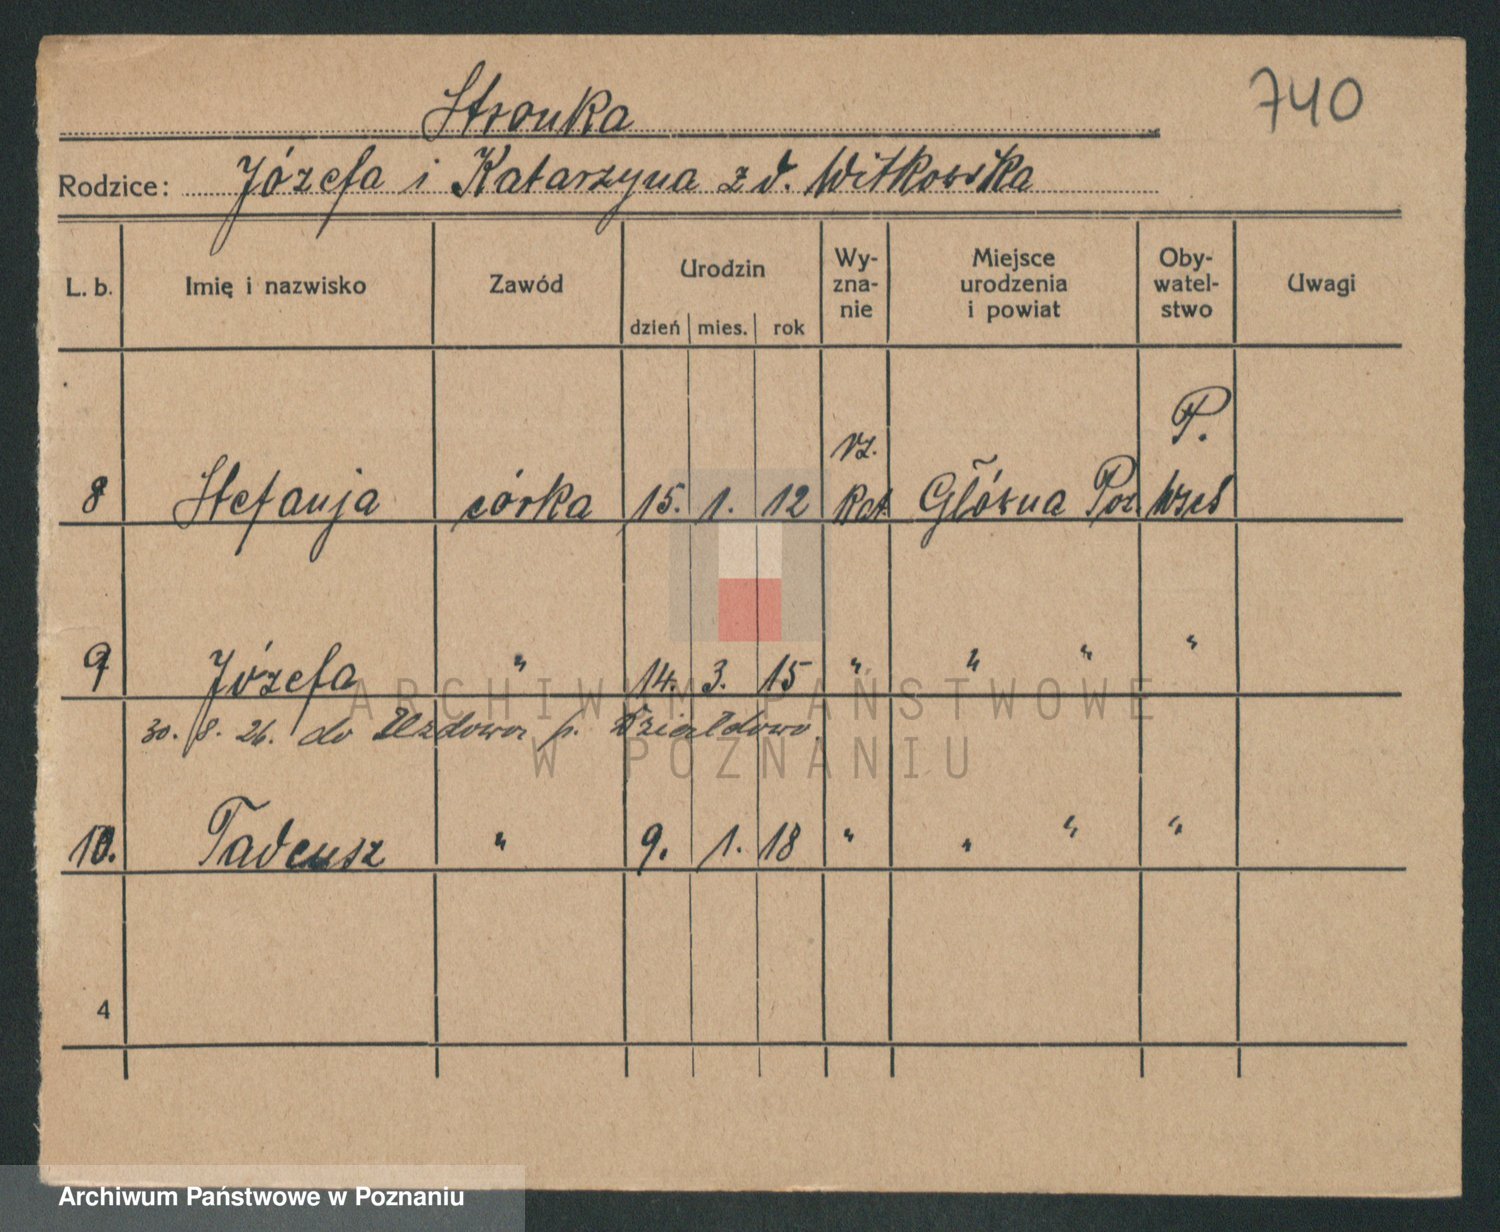 740
Stronka
Rodzice: Józefa i Katarzyna z d. Witkowska
L. b. Imię i nazwisko Zawód Urodzin dzień mies. rok Wy-zna-nie Miejsce urodzenia i powiat Oby-watel-stwo Uwagi
8 Stefanja córka 15. 1. 12 rz. kat. Główna Poz. P.
9 Józefa " 14. 3. 15 " " " "
30. 8. 26. do Uzdowa p. Działdowo.
10. Tadeusz " 9. 1. 18 " " " "
4
ARCHIWUM PAŃSTWOWE
W POZNANIU
Archiwum Państwowe w Poznaniu